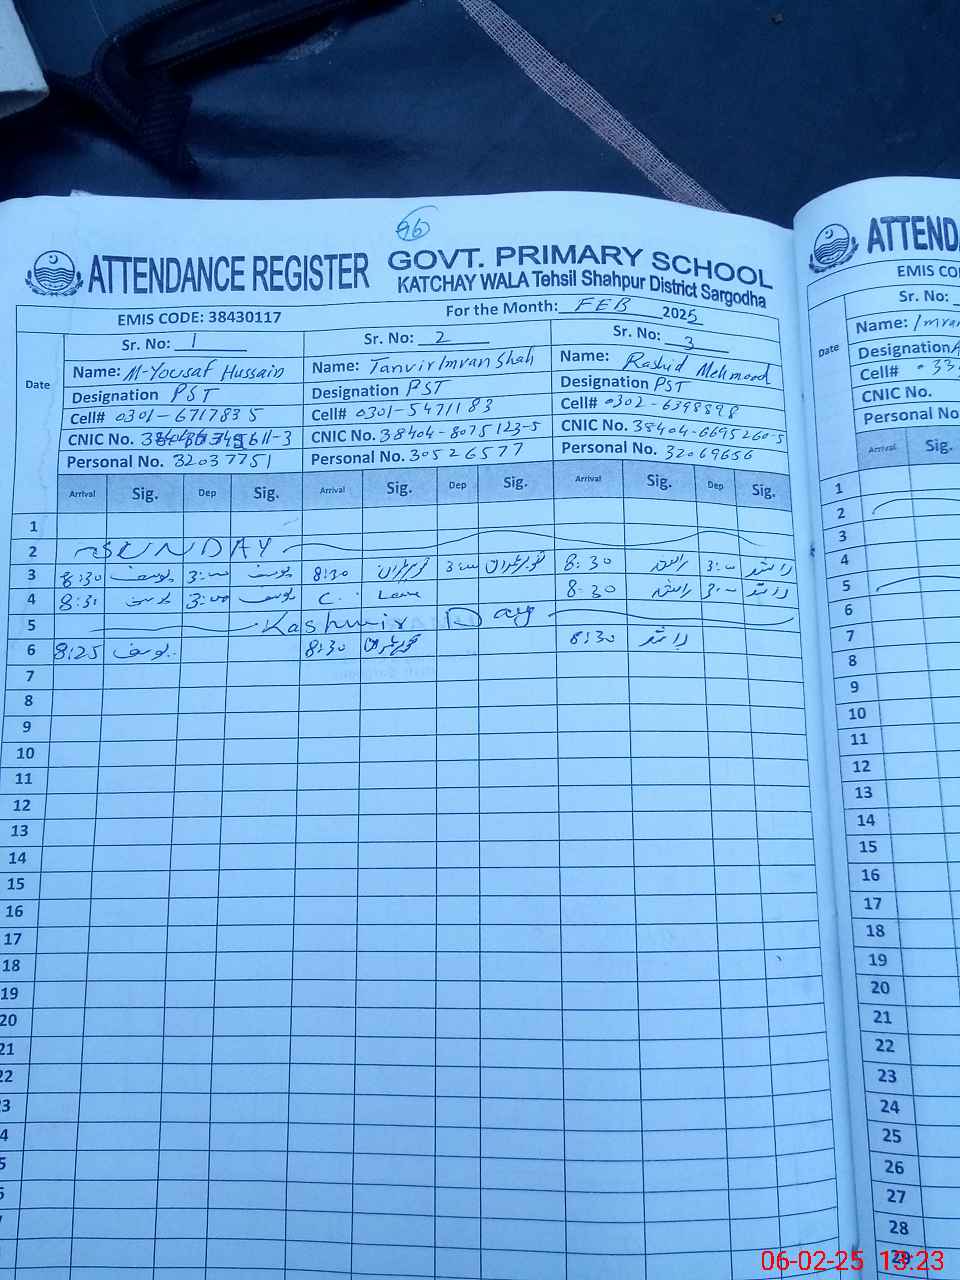 96
ATTENDANCE REGISTER GOVT. PRIMARY SCHOOL
KATCHAY WALA Tehsil Shahpur District Sargodha
EMIS CODE: 38430117 For the Month: FEB 2025
Sr. No: 1 Sr. No: 2 Sr. No: 3
Date
Name: M-Yousaf Hussain Name: Tanvir Imran Shah Name: Rashid Mehmood
Designation PST Designation PST Designation PST
Cell# 0301-6717835 Cell# 0301-5471183 Cell# 0302-6398898
CNIC No. CNIC No. 38404-8075123-5 CNIC No. 38404-6695260-5
Personal No. 32037751 Personal No. 30526577 Personal No. 32069656
Arrival Sig. Dep Sig. Arrival Sig. Dep Sig. Arrival Sig. Dep Sig.
1
2 SUNDAY
3 8:30 یوسف 3:00 یوسف 8:30 3:00 8:30 راشد 3:00 راشد
4 8:30 یوسف 3:00 یوسف C. Leave 8:30 راشد 3:00 راشد
5 Kashmir Day
6 8:25 یوسف 8:30 8:30 راشد
7
8
9
10
11
12
13
14
15
16
17
18
19
20
21
22
3
4
5
ATTENDA
EMIS CO
Sr. No:
Date
Name: Imran
Designation
Cell# 033
CNIC No.
Personal No
Arrival Sig.
1
2
3
4
5
6
7
8
9
10
11
12
13
14
15
16
17
18
19
20
21
22
23
24
25
26
27
28
29
06-02-25 13:23